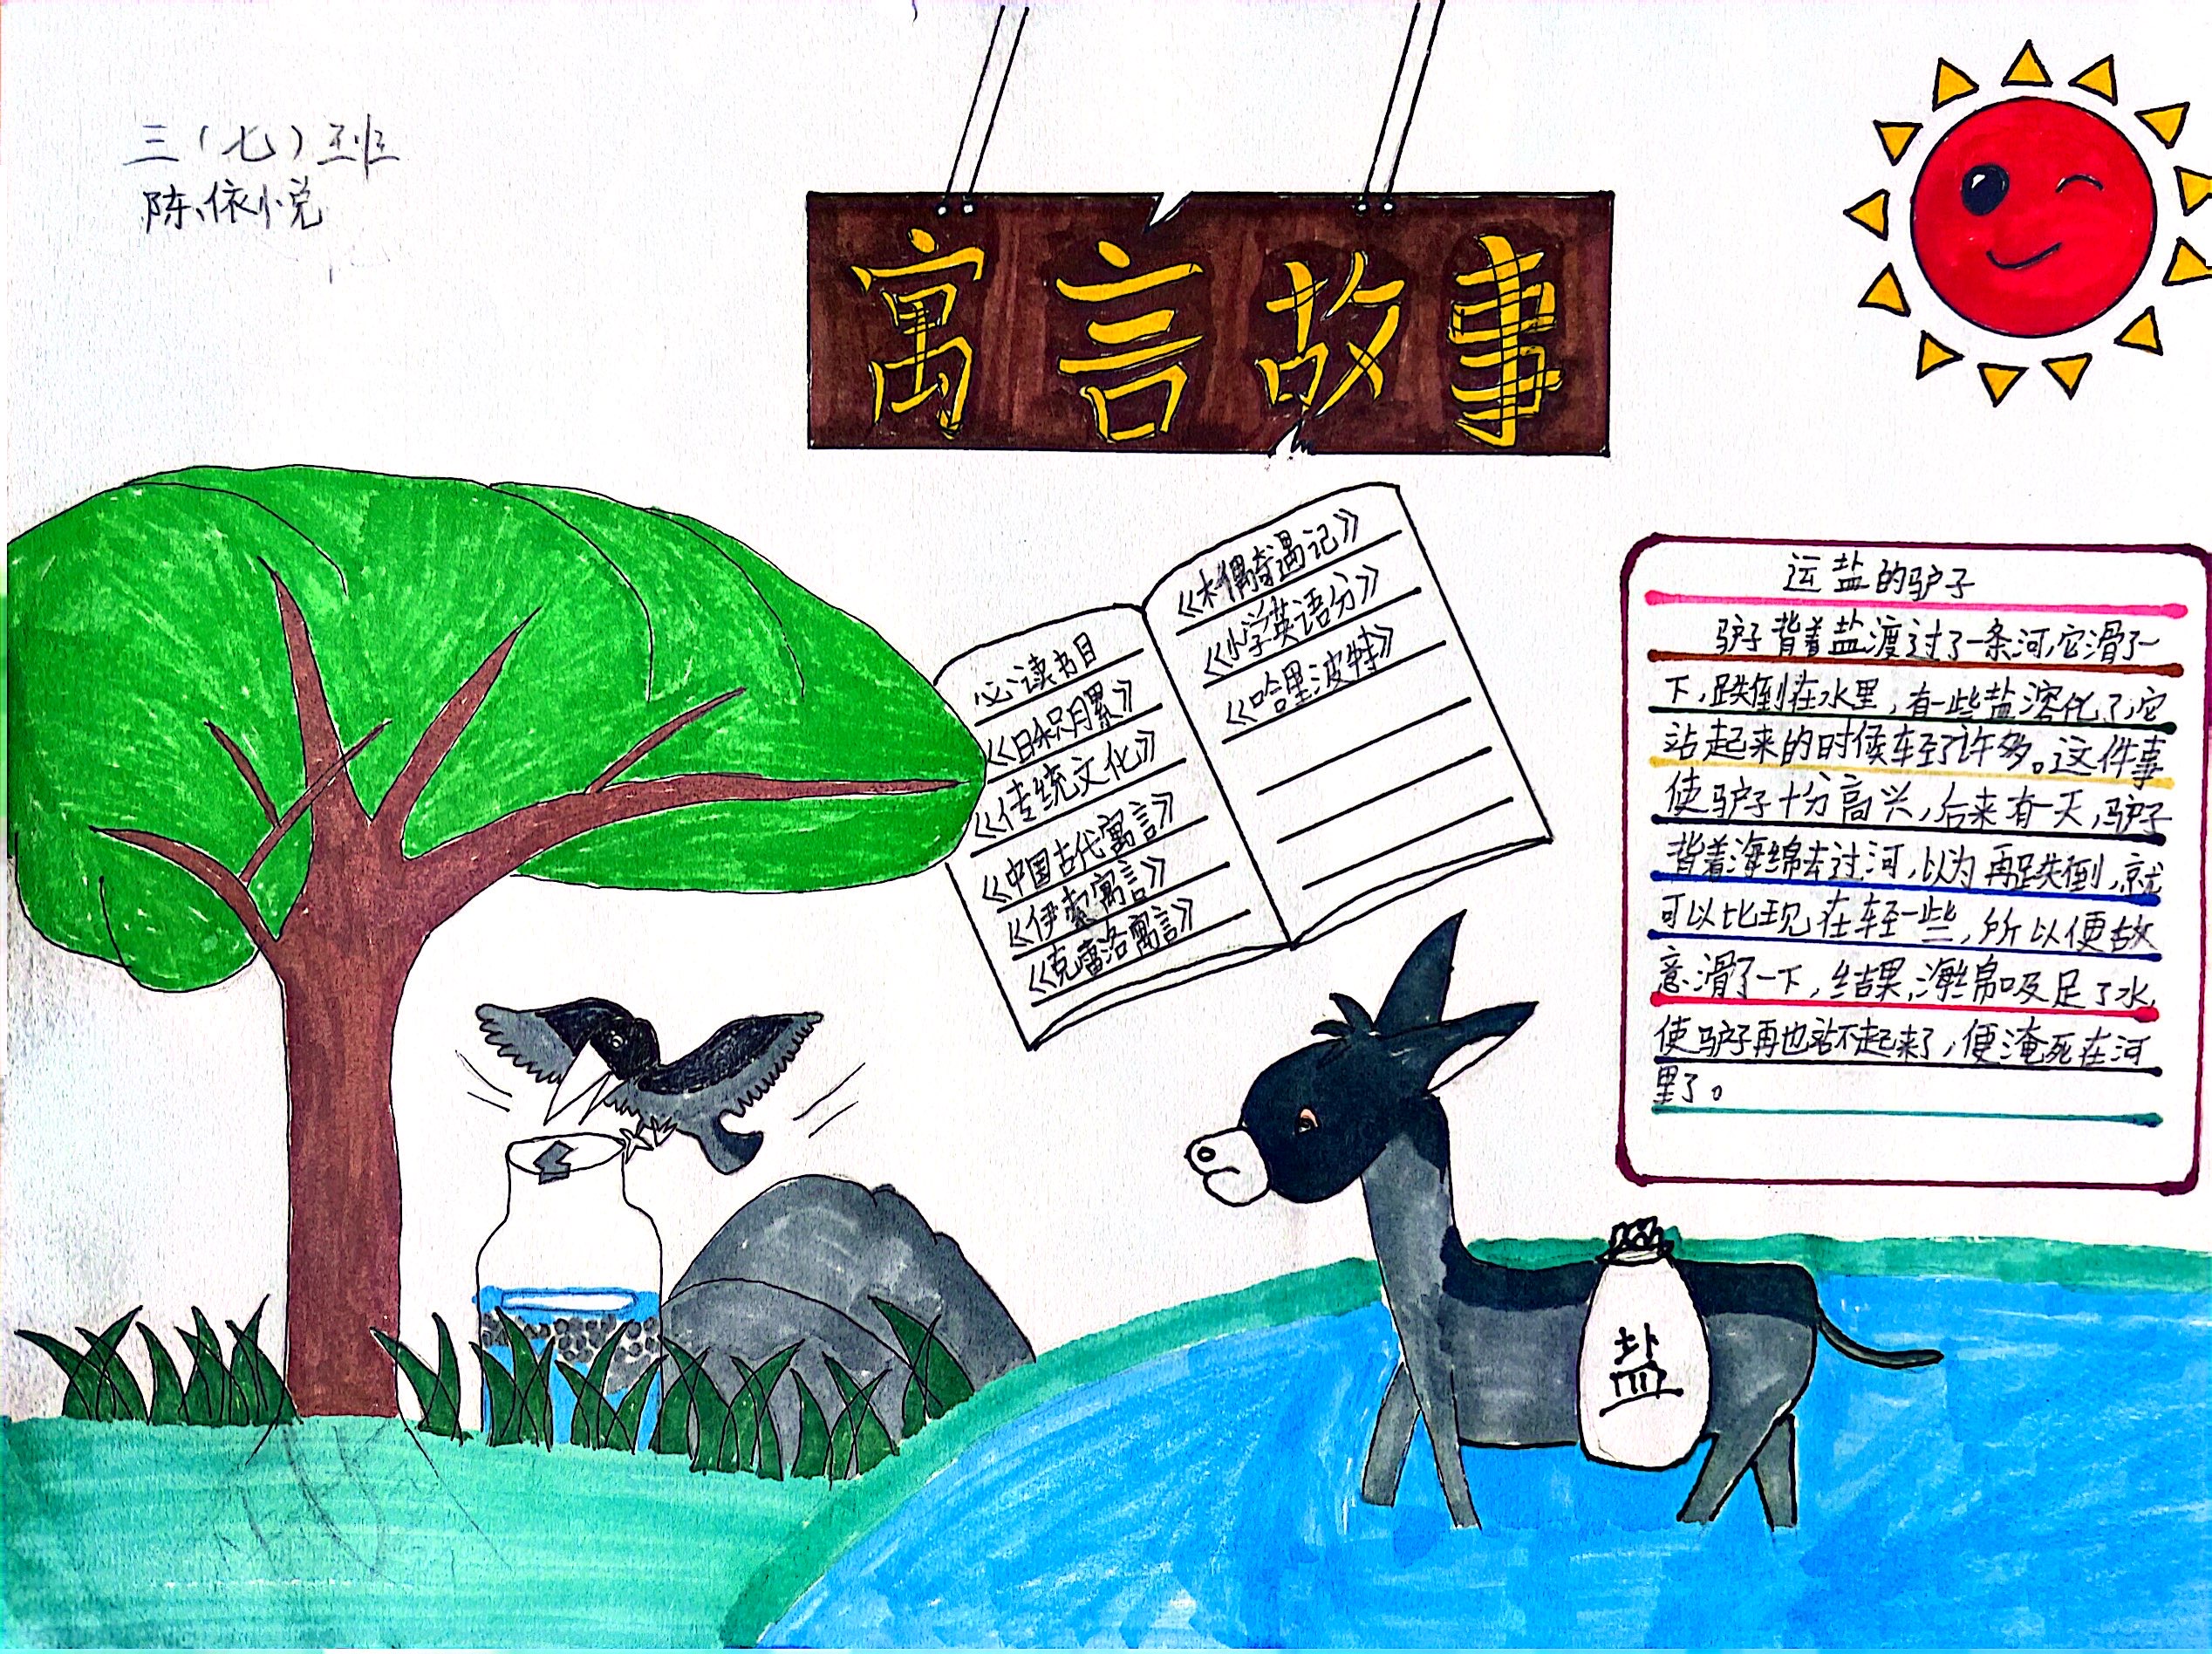 三(七)班
陈依悦
寓言故事
必读书目
《日积月累》
《传统文化》
《中国古代寓言》
《伊索寓言》
《克雷洛寓言》
《木偶奇遇记》
《小学英语分》
《哈里波特》
运盐的驴子
驴子背着盐渡过了一条河,它滑了一
下,跌倒在水里,有一些盐溶化了,它
站起来的时候轻了许多。这件事
使驴子十分高兴,后来有一天,驴子
背着海绵去过河,以为再跌倒,就
可以比现在轻一些,所以便故
意滑了一下,结果,海绵吸足了水,
使驴子再也站不起来了,便淹死在河
里了。
盐